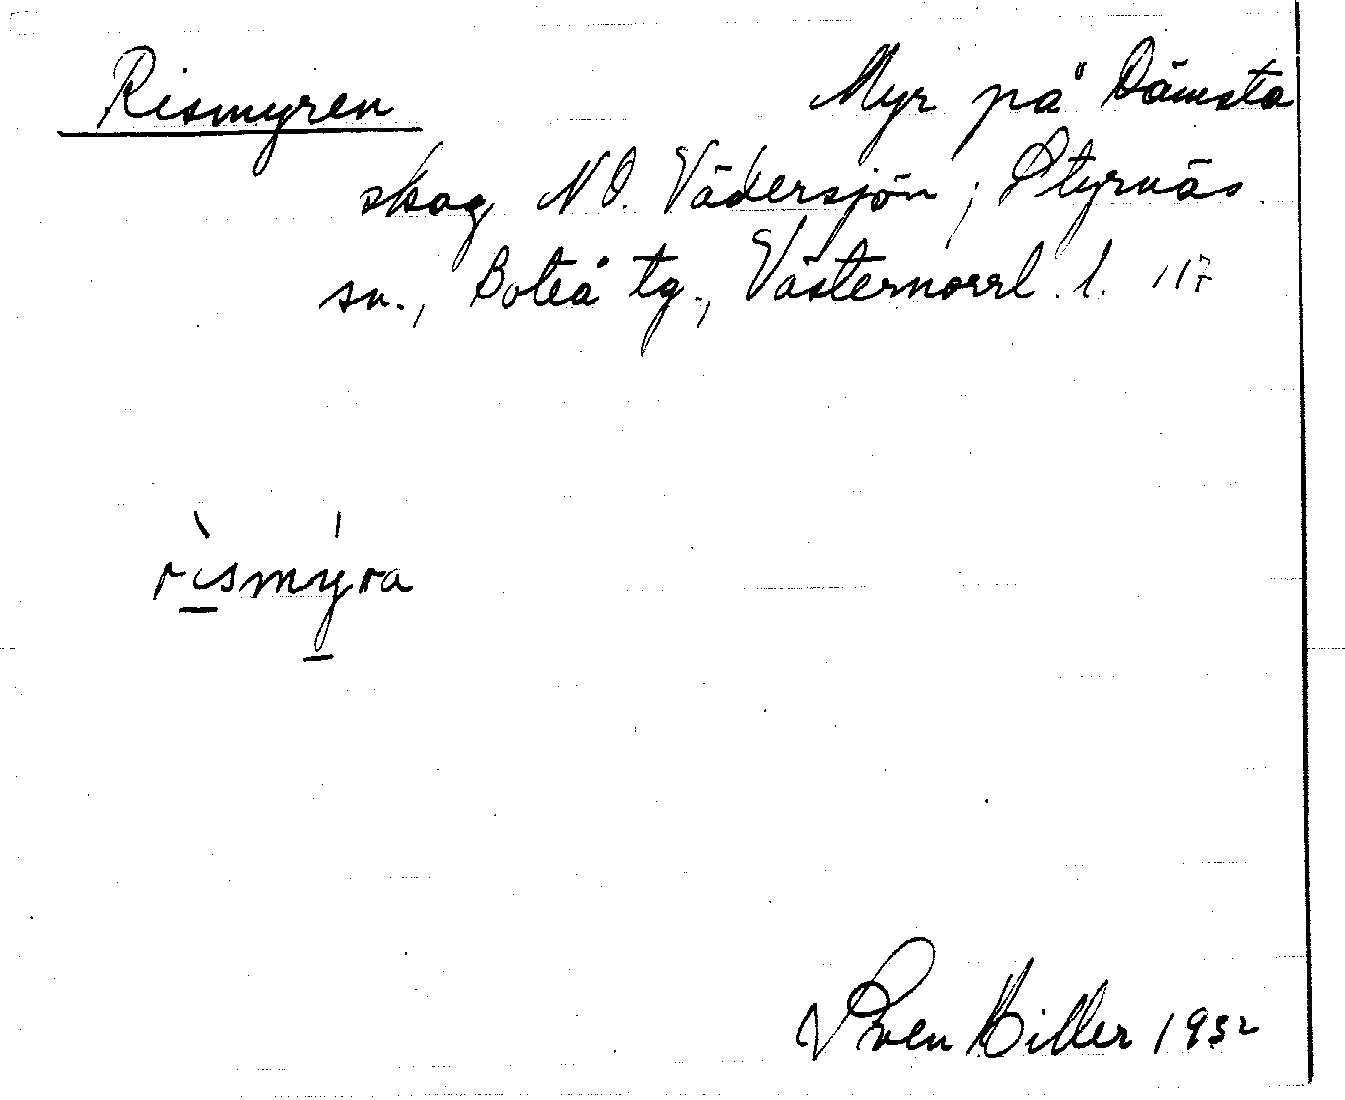 Rismyren Myr på Dämsta
skog NO. Vädersjön, Styrnäs
sn., Boteå tg., Västernorrl. l. 117
rìsmýra
Sven Hiller 1932